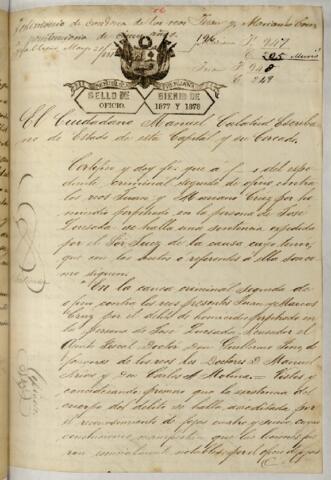 Testimonio de condena de los reos Juan y Mariano Cruz
penitenciaria de cinco años.
247
205
Murió
248
249
REPUBLICA PERUANA
SELLO DE OFICIO.
BIENIO DE 1877 Y 1878
El Ciudadano Manuel Calatrud Escriba-
no de Estado de esta Capital y su Cercado.
Certifico y doy fe: que á f del espe-
diente criminal seguido de oficio contra
los reos Juan y Mariano Cruz por ho-
micidio perpetrado en la persona de José
Quesada se halla una sentencia expedida
por el Sor Juez de la causa cuyo tenor,
que con los autos á referentes á ella son co-
mo siguen
En la causa criminal seguida de
oficio contra los reos presentes Juan y Marcos
Cruz por el delito de homicidio perpetrado en
la persona de José Quesada, acusador el
Agente Fiscal Doctor Don Guillermo
defensores de los reos los Doctores D. Manuel
Arias y Don Carlos A. Molina. = Vistos y
considerando primero que la existencia del
cuerpo del delito se halla acreditada por
el reconocimiento de fojas cuatro y
que las lesiones fue-
ron por el de fojas
Sentencia